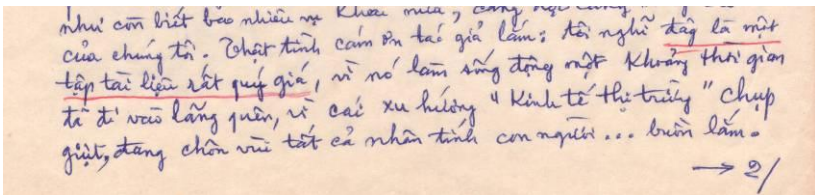 như còn biết bao nhiêu vụ khác nữa, càng
của chúng tôi. Thật tình cám ơn tác giả lắm: tôi nghĩ đây là một
tập tài liệu rất quý giá, vì nó làm sống động một khoảng thời gian
đã đi vào lãng quên, vì cái xu hướng "Kinh tế thị trường" chụp
giựt, đang chôn vùi tất cả nhân tình con người... buồn lắm.
→ 2/